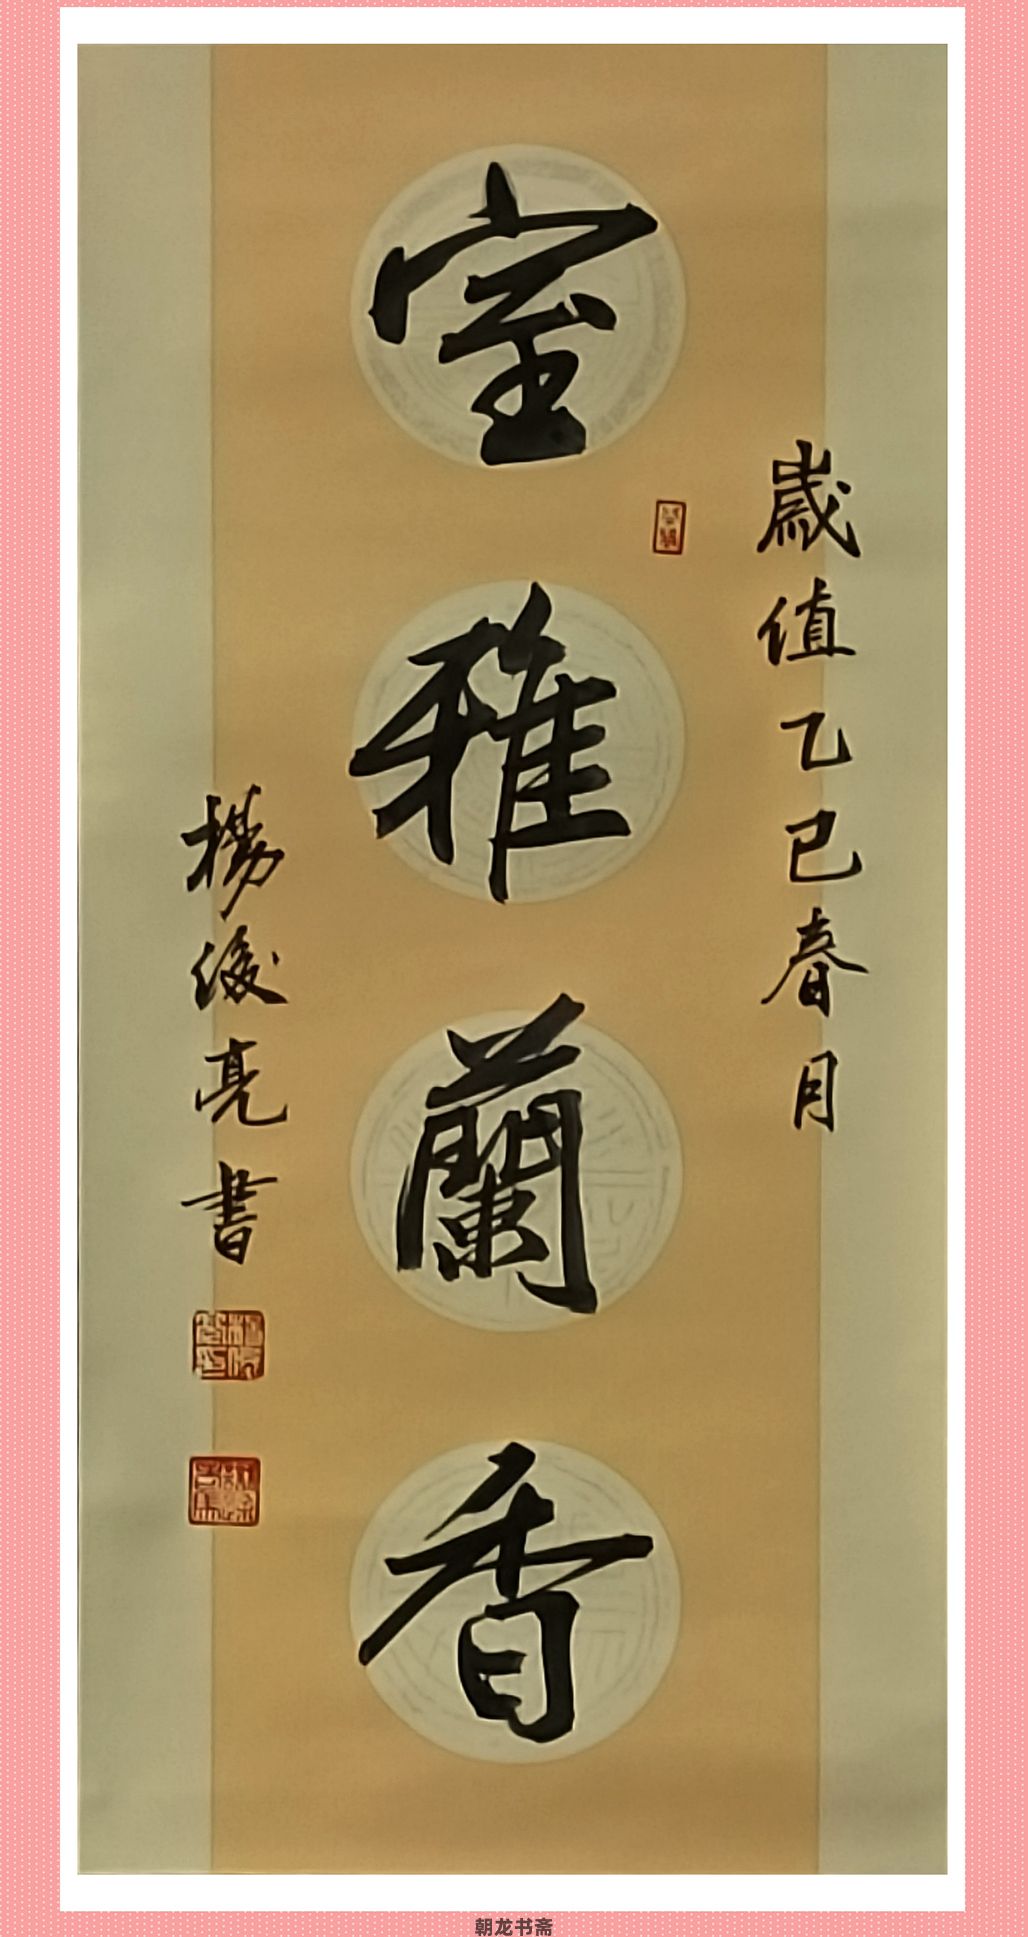 歲值乙巳春月
室雅蘭香
楊俊亮書
朝龙书斋